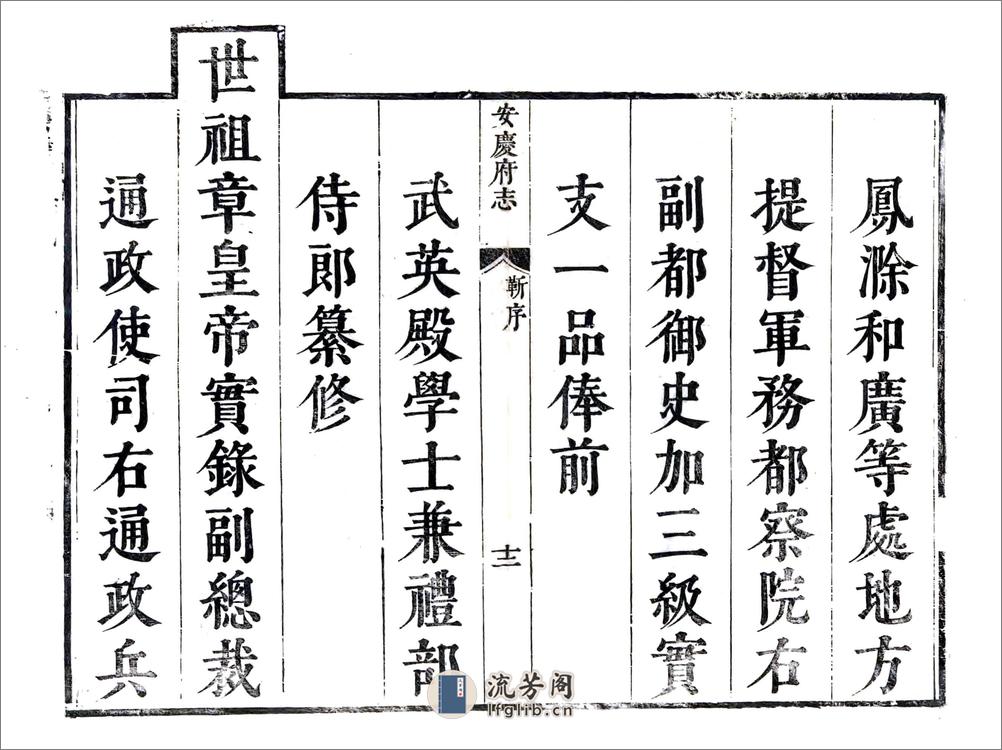 鳳滁和廣等處地方
提督軍務都察院右
副都御史加三級實
支一品俸前
安慶府志
靳序
十二
武英殿學士兼禮部
侍郎纂修
世祖章皇帝實錄副總裁
通政使司右通政兵
流芳阁
lfglib.cn